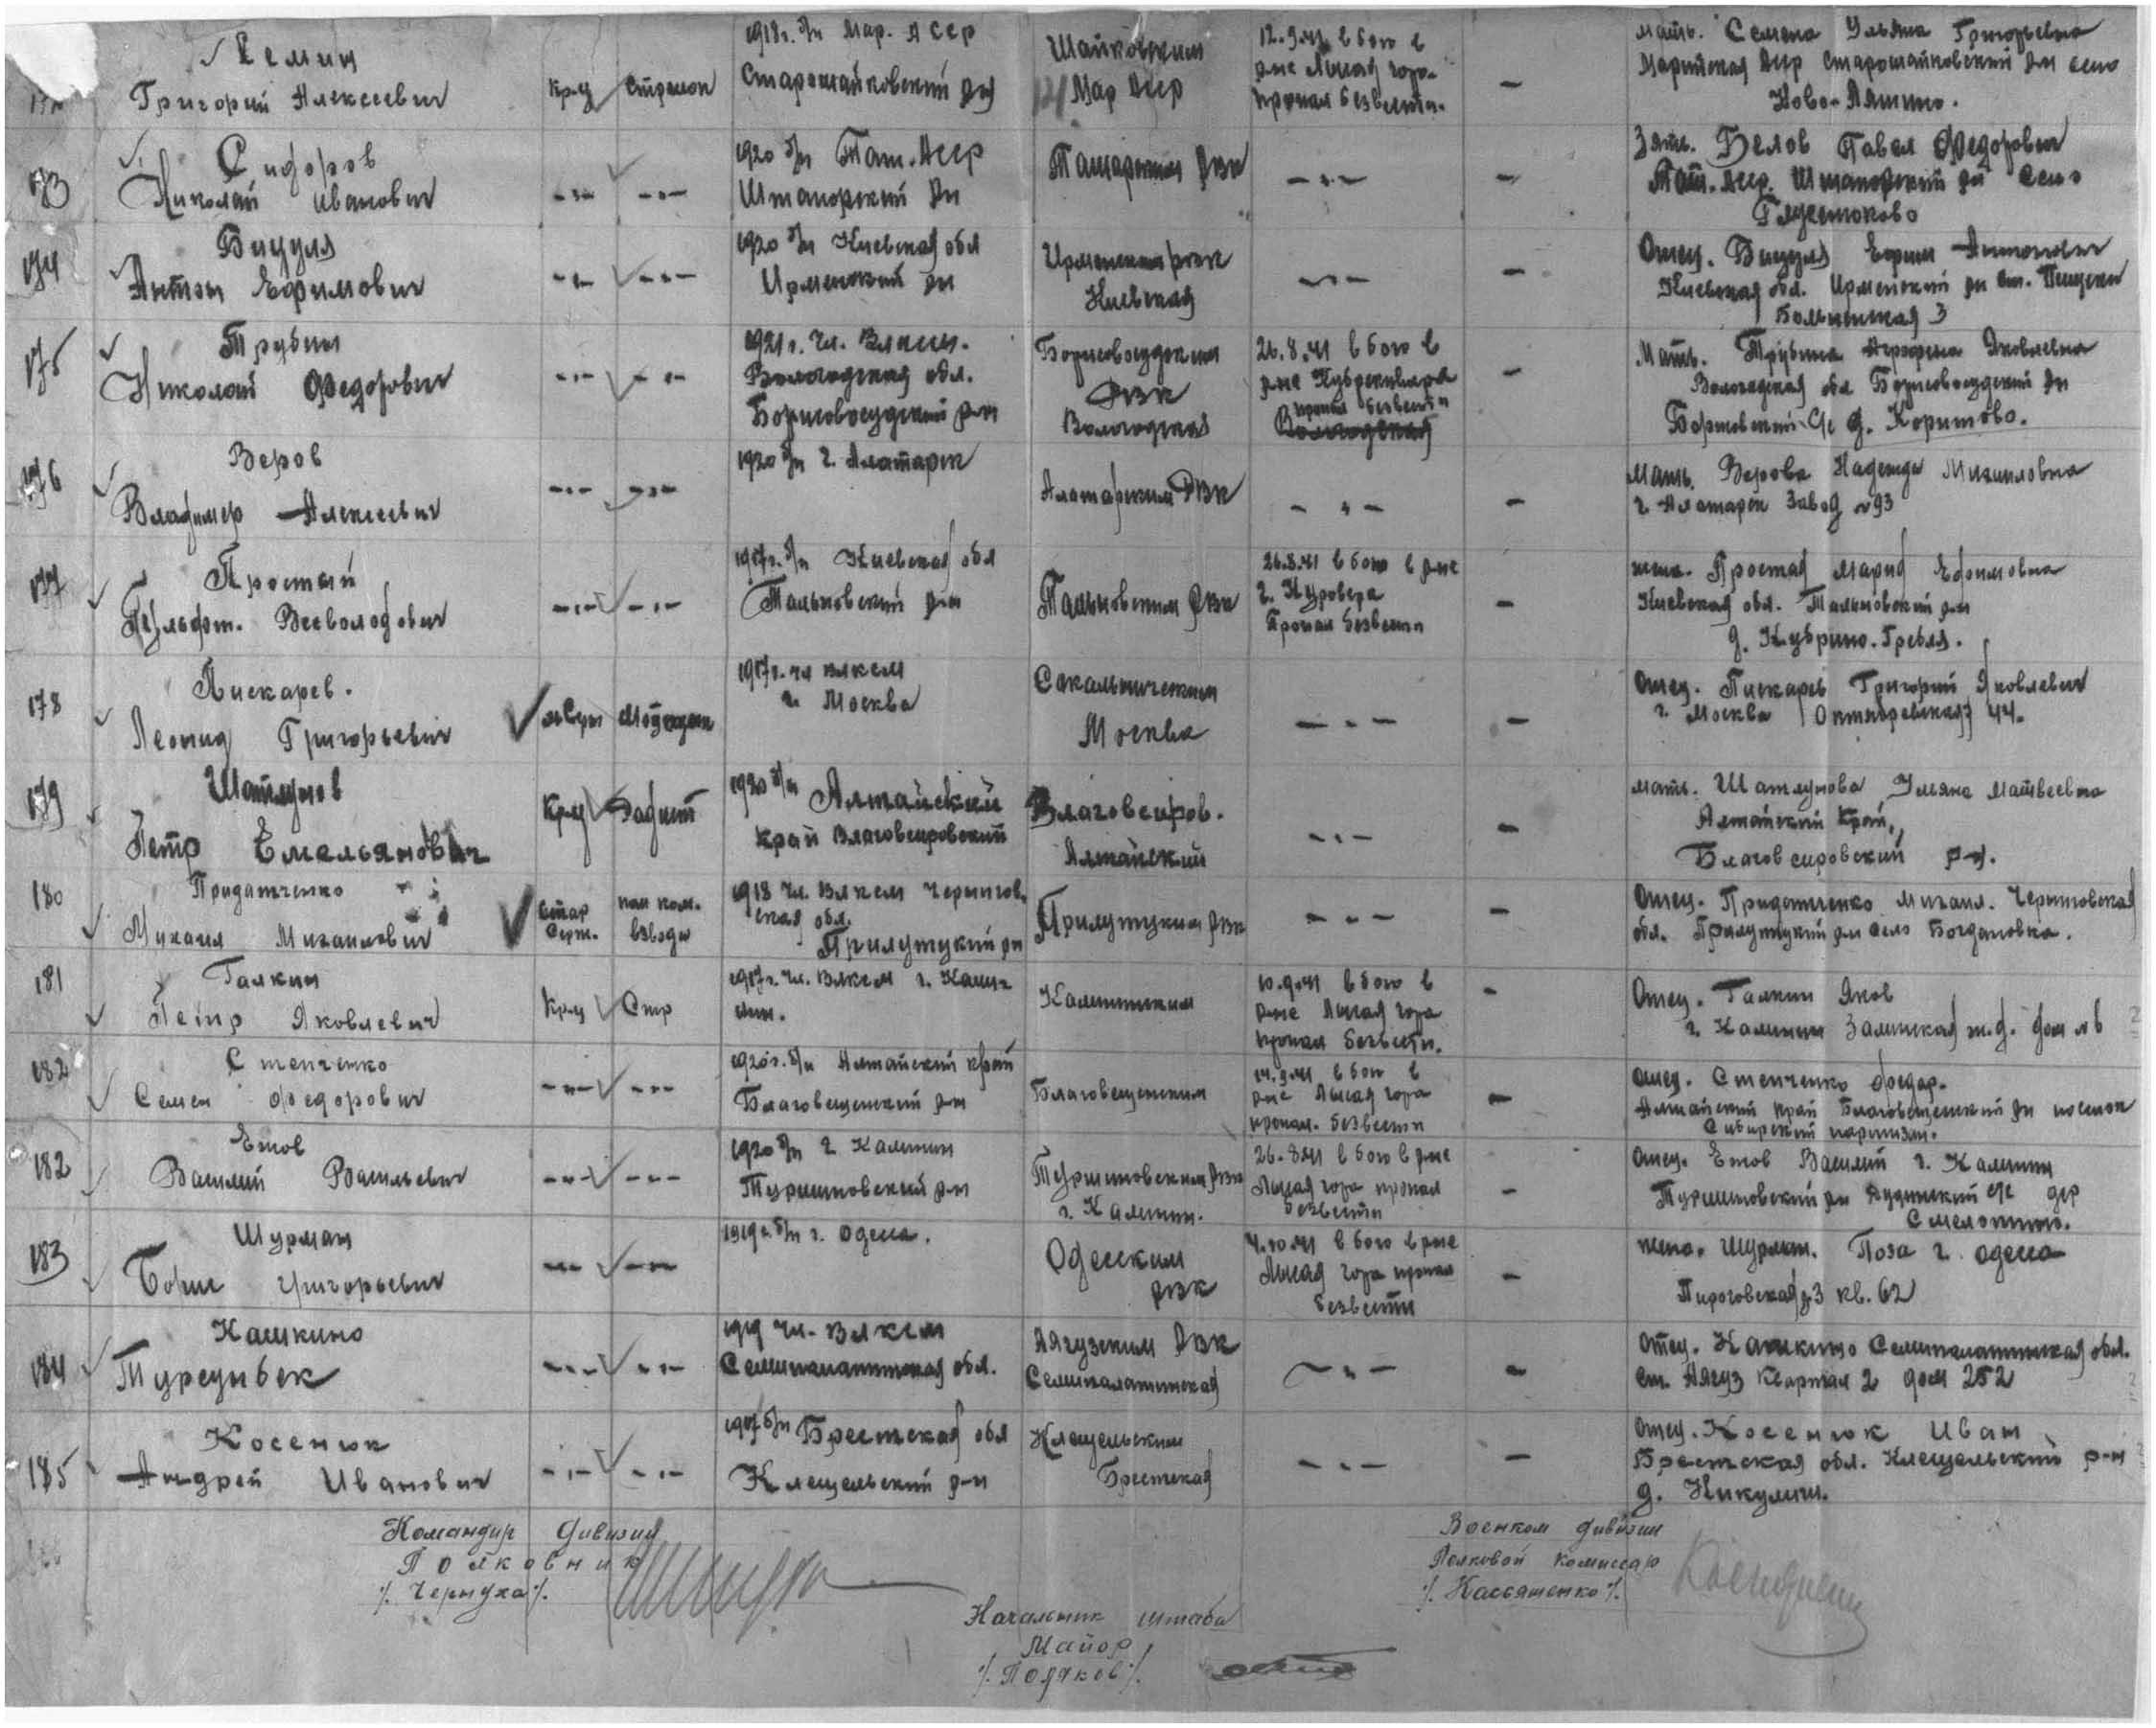 Семин
Григорий Алексеевич
Кр-ц Стрелок
1918г. б/п Мар. АССР
Старошайковский рн
Шайковским
Мар АССР
12.9.41 в бою в
р-не Лысая гора
пропал безвести.
—
мать. Семена Ульяна Григорьевна
Марийская АССР Старошайковский рн село
Ново-
173
Сидоров
Николай Иванович
-"- -"-
1920 б/п Тат. АССР
рн
Татарским РВК
-"-
—
Зять. Белов Павел Федорович
Тат. АССР. рн село
174
Антон Ефимович
-"- -"-
1920 б/п Киевская обл
рн
РВК
Киевская
-"-
—
Отец. Ефим Антонович
Киевская обл. рн ст.
3
175
Трубин
Николай Федорович
-"- -"-
1921г. Чл. Влксм.
Вологодская обл.
Борисовосудский р-н
Борисовосудским
РВК
Вологодская
26.8.41 в бою в
р-не
пропал безвести
—
Мать. Трубина Яковлевна
Вологодская обл Борисовосудский рн
Борисовский с/с д. Коритово.
176
Веров
Владимер Алексеевич
-"- -"-
1920 б/п г. Алатарск
Алатарским РВК
-"-
—
Мать. Верова Надежда Михаиловна
г. Алатарск Завод №93
177
Простый
Всеволодович
-"- -"-
1917г. б/п Киевская обл
Тальновский р-н
Тальновским РВК
26.8.41 в бою в р-не
г.
Пропал безвести
—
жена. Простая Мария Ефимовна
Киевская обл. Тальновский р-н
д. Кубрино. Гребля.
178
Пискарев.
Леонид Григорьевич
1917г. чл влксм
г. Москва
Сокальническим
Москва
-"-
—
Отец. Пискарев Григорий Яковлевич
г. Москва Октябревская 44.
179
Шатлунов
Петр Емельянович
Кр-ц Радист
1920 б/п Алтайский
край Благовещровский
Благовещров.
Алтайский
-"-
—
мать. Шатлунова Ульяна Матвеевна
Алтайский край,
р-н.
180
Придатченко
Михаил Михаилович
Стар
Серж.
пом ком.
взвода
1918 Чл. Влксм Чернигов.
ская обл.
Прилутцкий рн
Прилутцким РВК
-"-
—
Отец. Придатченко Михаил. Черниговская
обл. Прилутцкий рн село Богдановка.
181
Галкин
Петр Яковлевич
Кр-ц Стр
1917г. Чл. Влксм г. Кали-
нин.
Калининским
10.9.41 в бою в
р-не Лысая гора
пропал безвести.
—
Отец. Галкин Яков
г. Калинин дом №6
182
Степченко
Семен Федорович
-"- -"-
1920г. б/п Алтайский край
Благовещенский р-н
Благовещенским
14.9.41 в бою в
р-не Лысая гора
пропал. безвести
—
Отец. Степченко Федор.
Алтайский край Благовещенский рн поселок
Сибирский партизан.
182
Ежов
Василий Васильевич
-"- -"-
1920 б/п г. Калинин
р-н
РВК
г. Калинин.
26.8.41 в бою в р-не
Лысая гора пропал
безвести
—
Отец. Ежов Василий г. Калинин
рн с/с дер
183
Шурман
Борис Григорьевич
-"- -"-
1919г. б/п г. Одесса.
Одесским
РВК
4.10.41 в бою в р-не
Лысая гора пропал
безвести
—
жена. Шурман. Роза г. Одесса
Пироговская д.3 кв. 62
184
Кашкино
Турсунбек
-"- -"-
1919 Чл. Влксм
Семипалатинская обл.
Аягузским РВК
Семипалатинская
-"-
—
Отец. Кашкино Семипалатинская обл.
ст. Аягуз Квартал 2 дом 252
185
Косенюк
Андрей Иванович
-"- -"-
1917 б/п Брестская обл
Клещельский р-н
Клещельским
Брестская
-"-
—
Отец. Косенюк Иван
Брестская обл. Клещельский р-н
д. Никулич.
Командир дивизии
Полковник
/. Чернуха /.
Военком дивизии
Полковой комиссар
/. Касьяненко /.
Начальник штаба
Майор
/. Поляков /.